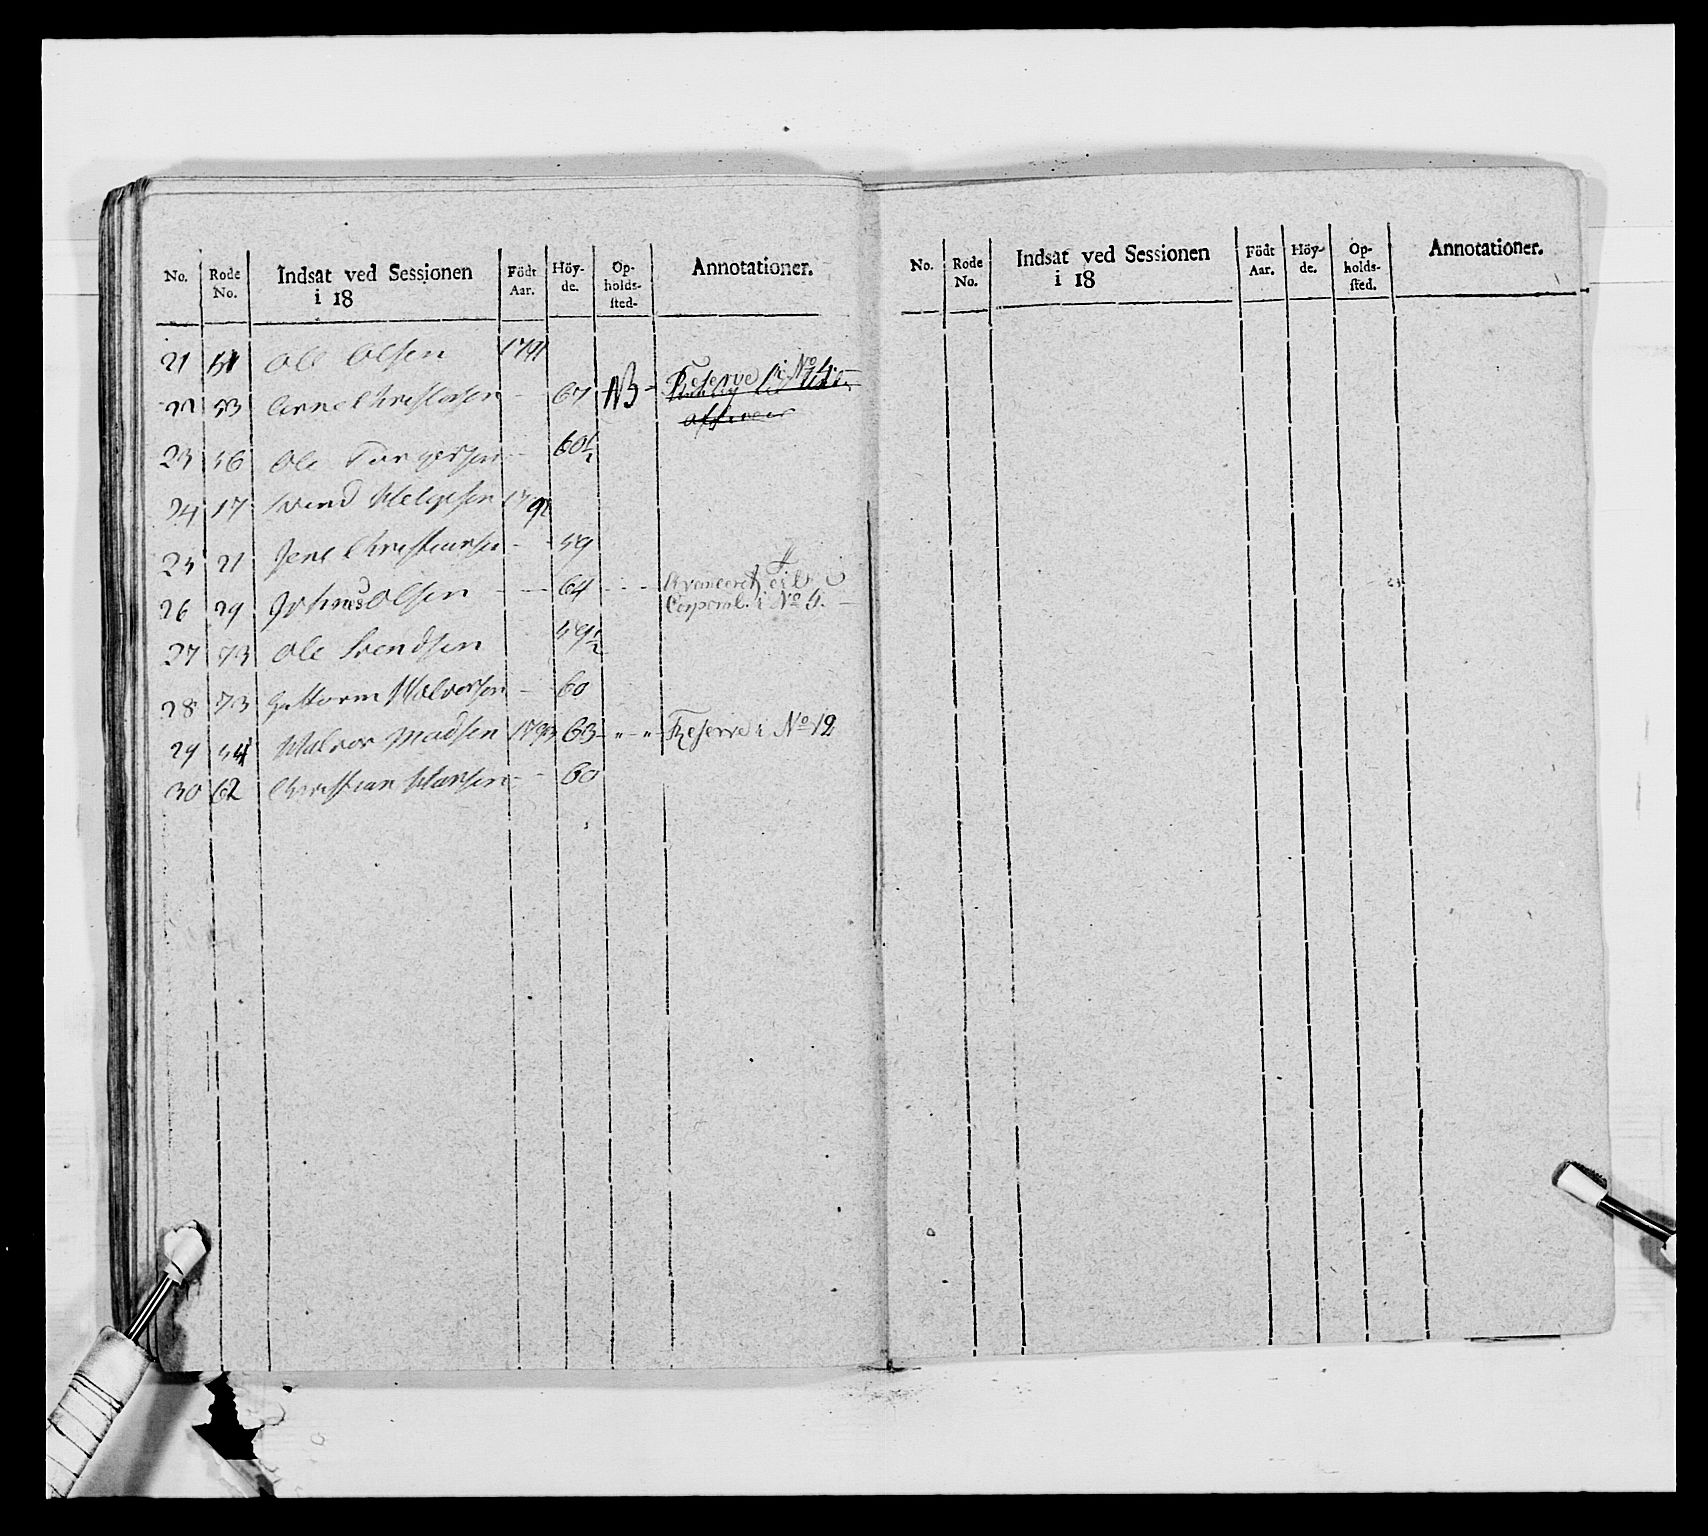 No. Rode No. Indsat ved Sessionen i 18 Födt Aar. Höy-de. Op-holds-sted. Annotationer.
21 51 Ole Olsen 1791
22 53 Christensen - 67 NB - Reserve i No 4
23 56 Ole Torgersen - 60½
24 17 Svend Helgesen 1792
25 21 Jens Christiansen - 59
26 29 Johnes Olsen - 64 - Avanceret til Corporal i No 4.
27 73 Ole Svendsen 59½
28 73 Guttorm Halvorsen - 60
29 54 Halvor Madsen 1793 63 - " - " - Reserve i No 12
30 62 Christian Hansen - 60
No. Rode No. Indsat ved Sessionen i 18 Födt Aar. Höy-de. Op-holds-sted. Annotationer.